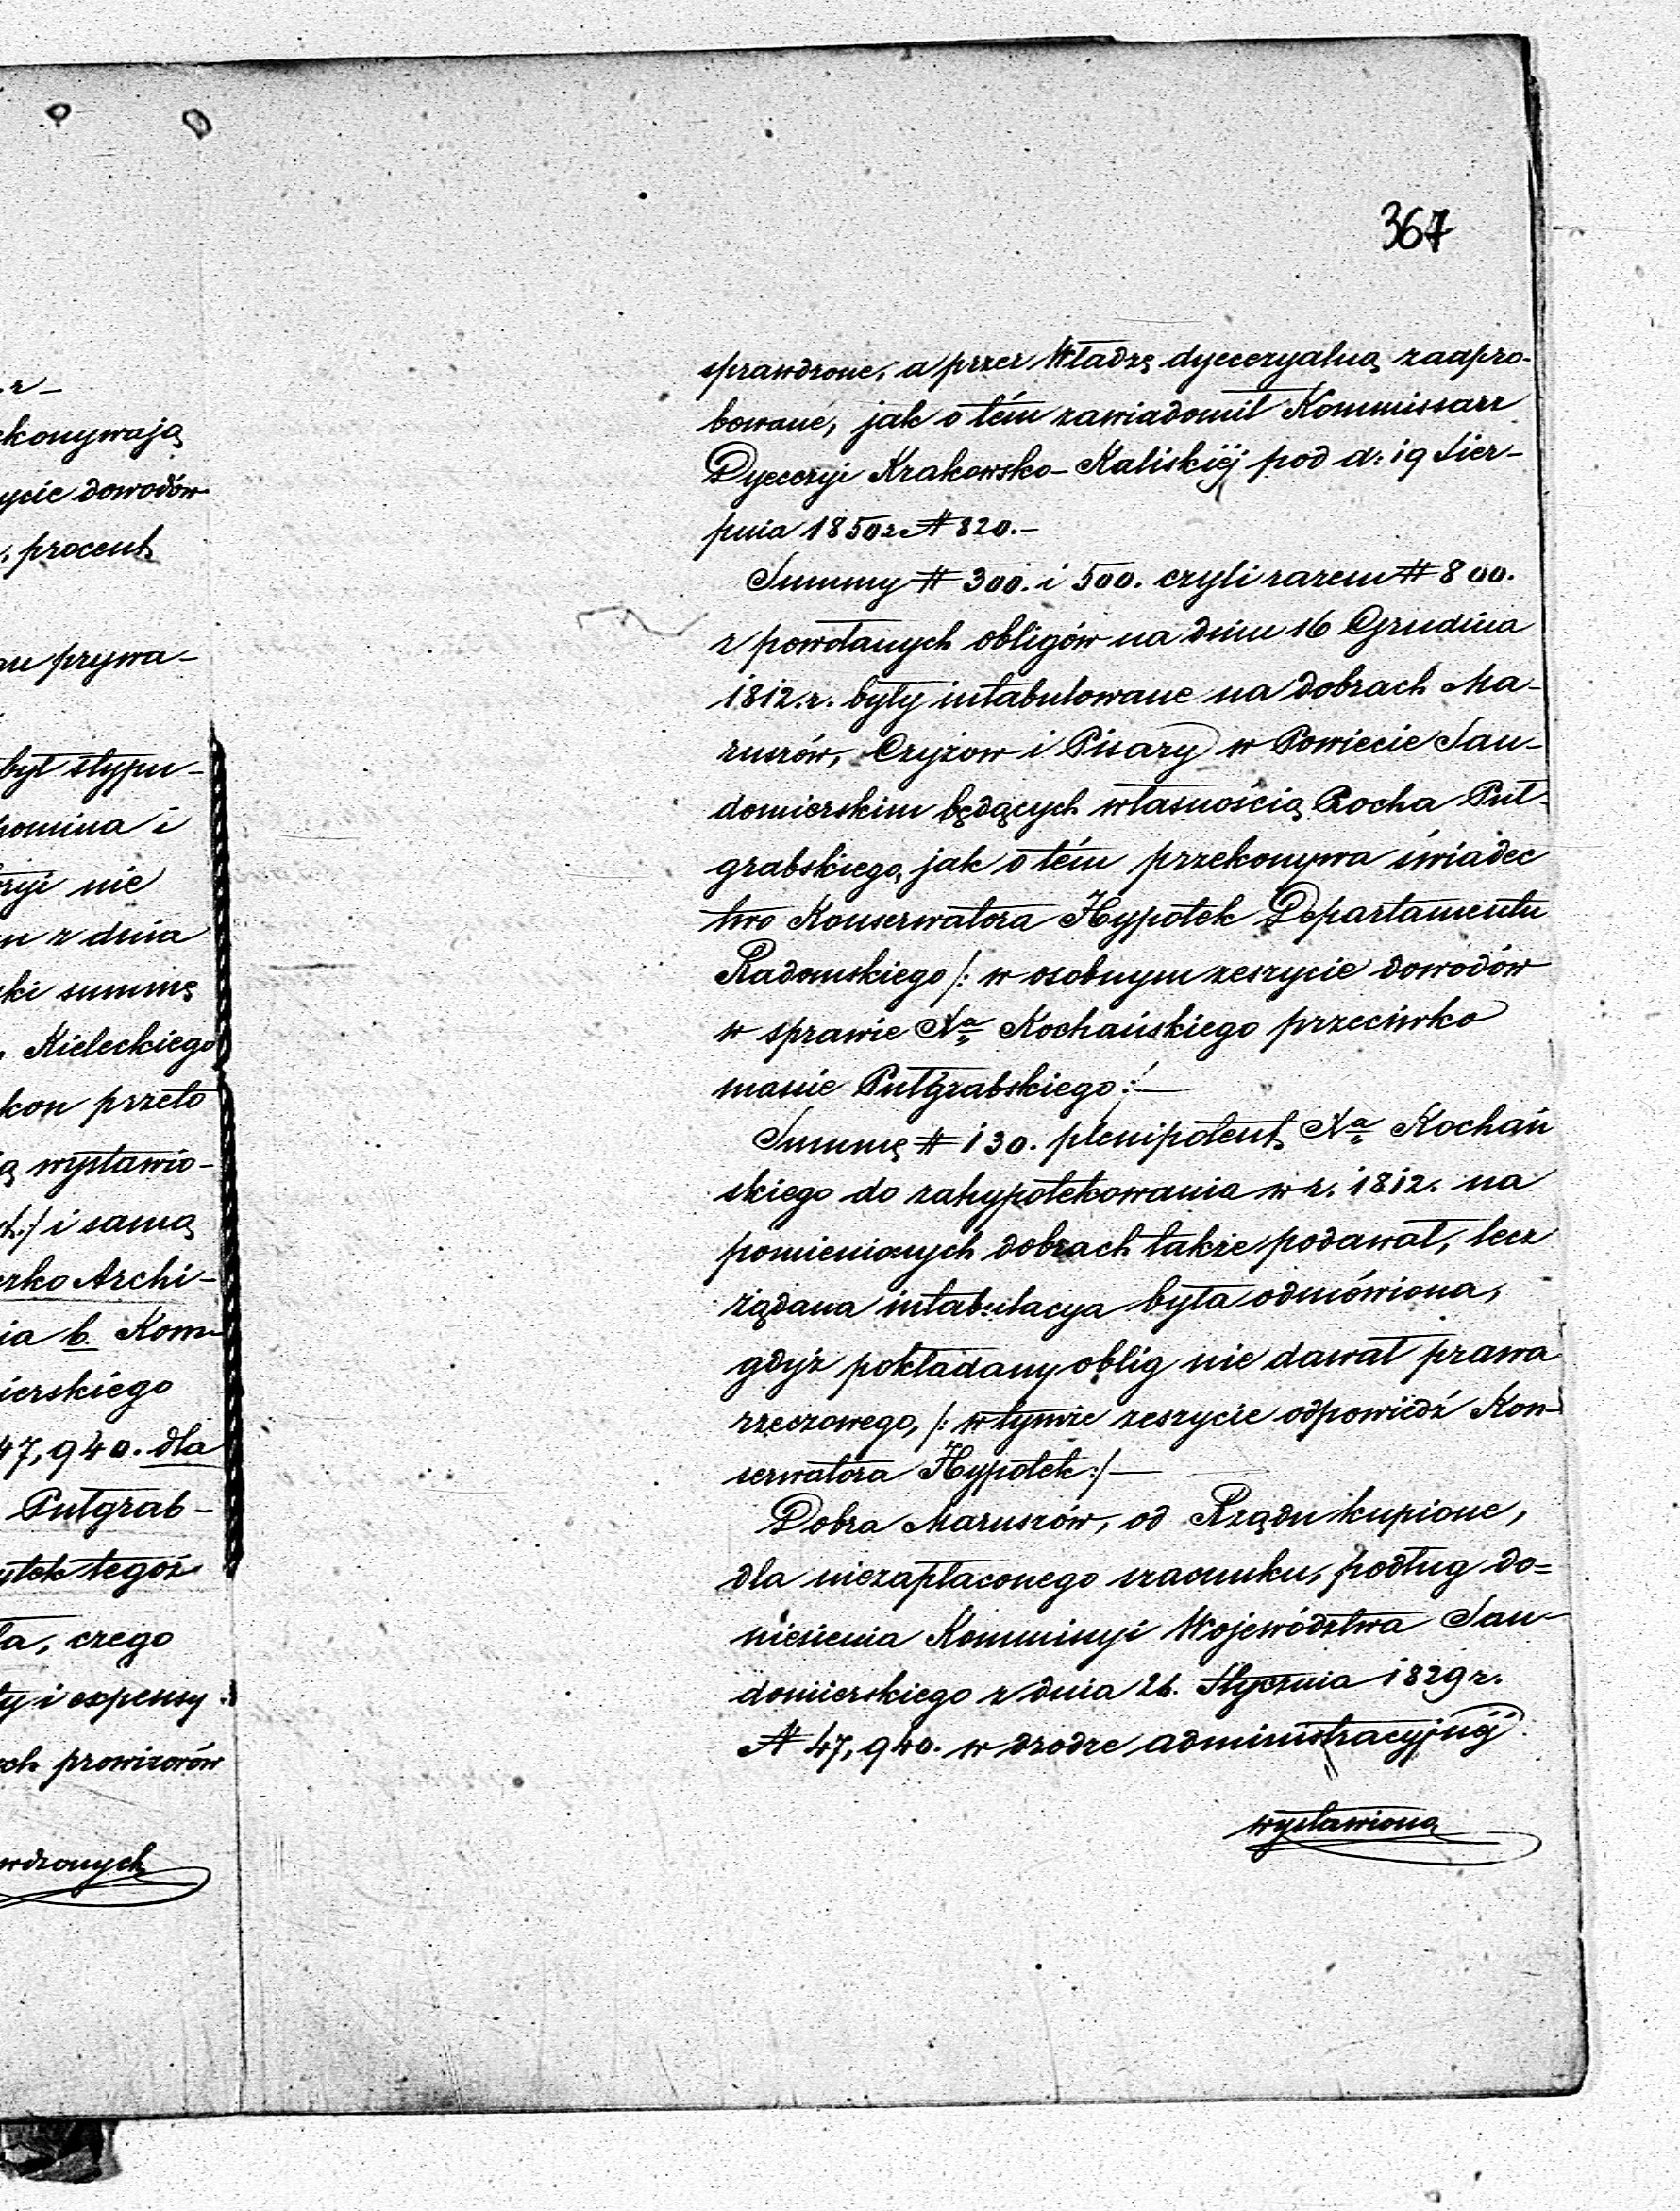 .r–
konywają
ycie dowodów
, procent
prywa–
był stypu–
pomina i
zyi nie
z dnia
ki summę
Kieleckiego
kon przeto
ą wystawio–
:/ i samą
zko Archi–
ia b. Kom–
ierskiego
47,940. dla
Putgrab–
ytek tegoż
ła, czego
ty i expensy
ch prowizorów
wdzonych
367
sprawdzone, a przez Władzę dyecezyalną zaapro-
bowane, jak o tém zawiadomił Kommissarz
Dyecezyi Krakowsko–Kaliskiéj pod d: 19 Sier–
pnia 1850r N 820.–
Summy # 300. i 500. czyli razem # 800.
z powołanych obligów na dniu 16 Grudnia
1812.r. były intabulowane na dobrach Ma–
ruszów, Czyżow i Pisary w Powiecie San–
domierskim będących własnością Rocha Put–
grabskiego, jak o tém przekonywa świadec
two Konserwatora Hypotek Departamentu
Radomskiego /: w osobnym zeszycie dowodów
w sprawie Xa Kochańskiego przeciwko
massie Putgrabskiego :/–
Summę # 130. plenipotent Xa Kochań
skiego do zahypotekowania w r. 1812. na
pomienionych dobrach także podawał, lecz
żądana intabulacya była odmówiona,
gdyż pokładany oblig nie dawał prawa
rzeczowego, /: w tymże zeszycie odpowiedź Kon–
serwatora Hypotek :/–
Dobra Maruszów, od Rządu kupione,
dla niezapłaconego szacunku, podług do=
niesienia Kommissyi Województwa San–
domierskiego z dnia 26. Stycznia 1829 r.
N 47,940. w drodze administracyjnéj
wystawiono